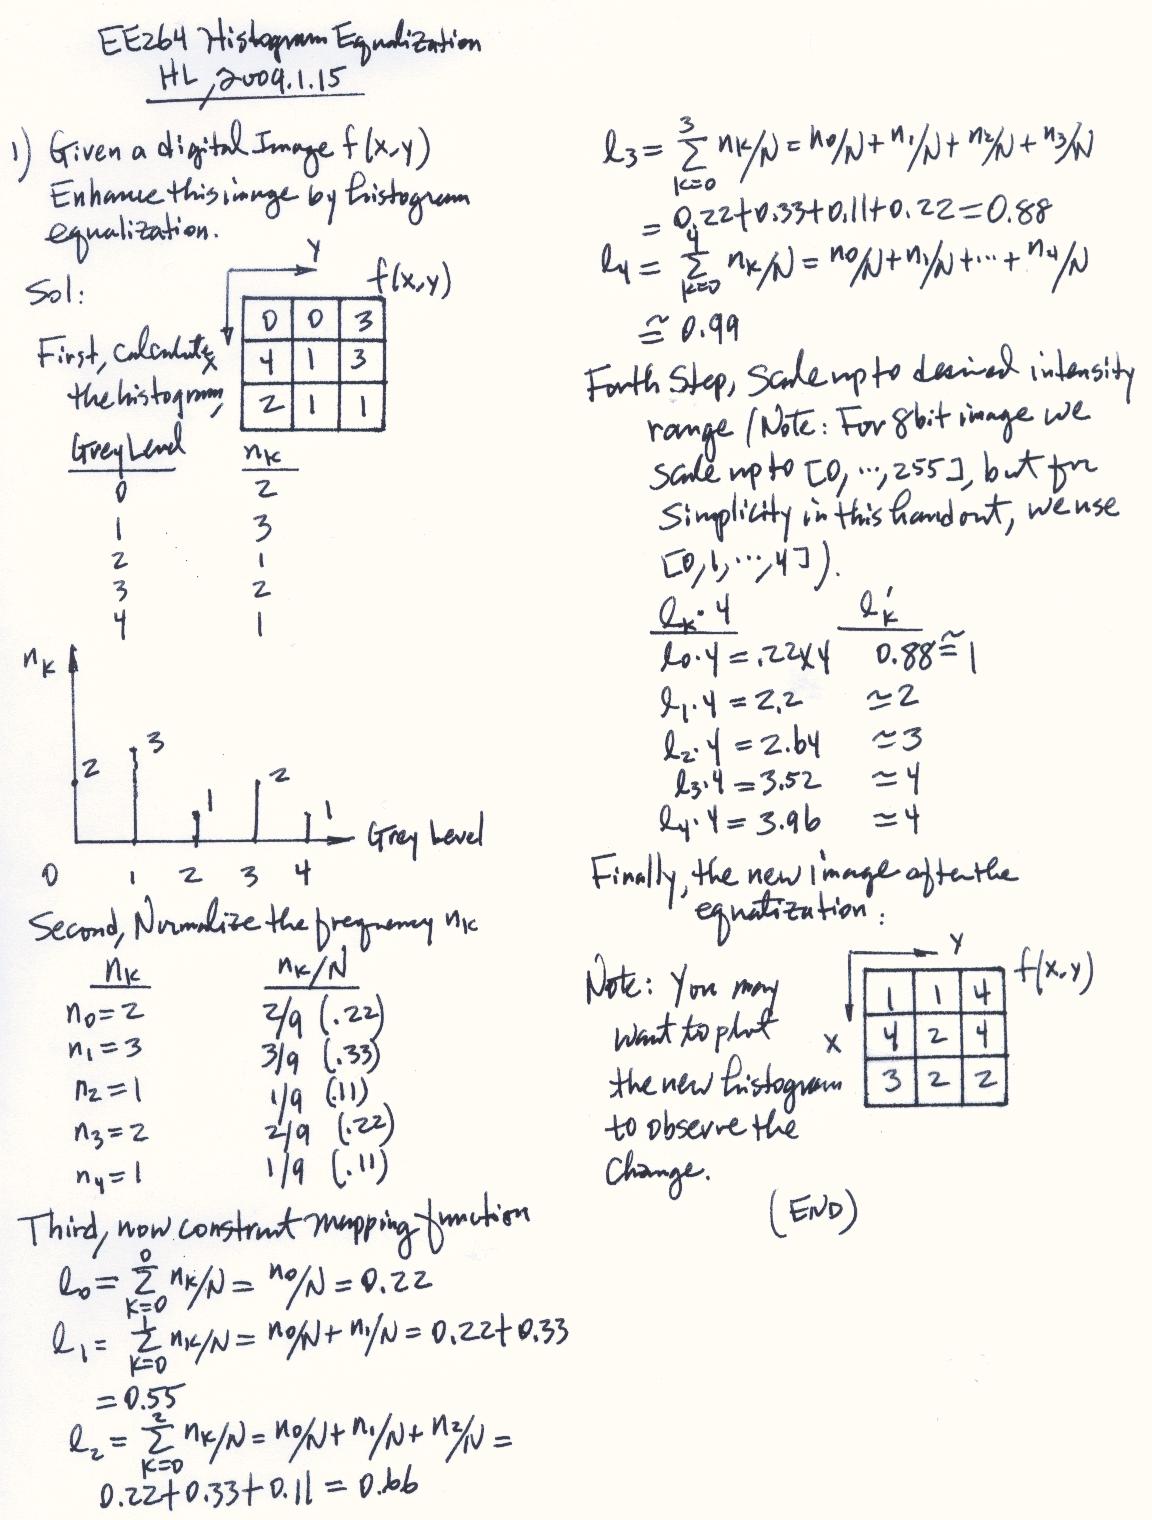 EE264 Histogram Equalization
HL, 2009.1.15
1) Given a digital Image f(x,y)
Enhance this image by histogram
equalization.
Sol:
Y
f(x,y)
First, calculate
X
the histogram,
0 0 3
4 1 3
2 1 1
Grey Level nK
0 2
1 3
2 1
3 2
4 1
nK
2 3 1 2 1
Grey Level
0 1 2 3 4
Second, Normalize the frequency nK
nK nK/N
n0=2 2/9 (.22)
n1=3 3/9 (.33)
n2=1 1/9 (.11)
n3=2 2/9 (.22)
n4=1 1/9 (.11)
Third, now construct mapping function
l0= 0ΣK=0 nK/N = n0/N = 0.22
l1= 1ΣK=0 nK/N = n0/N + n1/N = 0.22+0.33
=0.55
l2= 2ΣK=0 nK/N = n0/N + n1/N + n2/N =
0.22+0.33+0.11 = 0.66
l3= 3ΣK=0 nK/N = n0/N + n1/N + n2/N + n3/N
= 0.22+0.33+0.11+0.22=0.88
l4= 4ΣK=0 nK/N = n0/N+n1/N+...+n4/N
≅ 0.99
Forth Step, Scale up to desired intensity
range (Note: For 8bit image we
scale up to [0,...,255], but for
simplicity in this handout, we use
[0,1,...,4]).
lK·4 l'K
l0·4=.22x4 0.88≅1
l1·4=2.2 ≃2
l2·4=2.64 ≃3
l3·4=3.52 ≃4
l4·4=3.96 ≃4
Finally, the new image after the
equalization:
Y
f(x,y)
X
1 1 4
4 2 4
3 2 2
Note: You may
want to plot
the new histogram
to observe the
change.
(END)